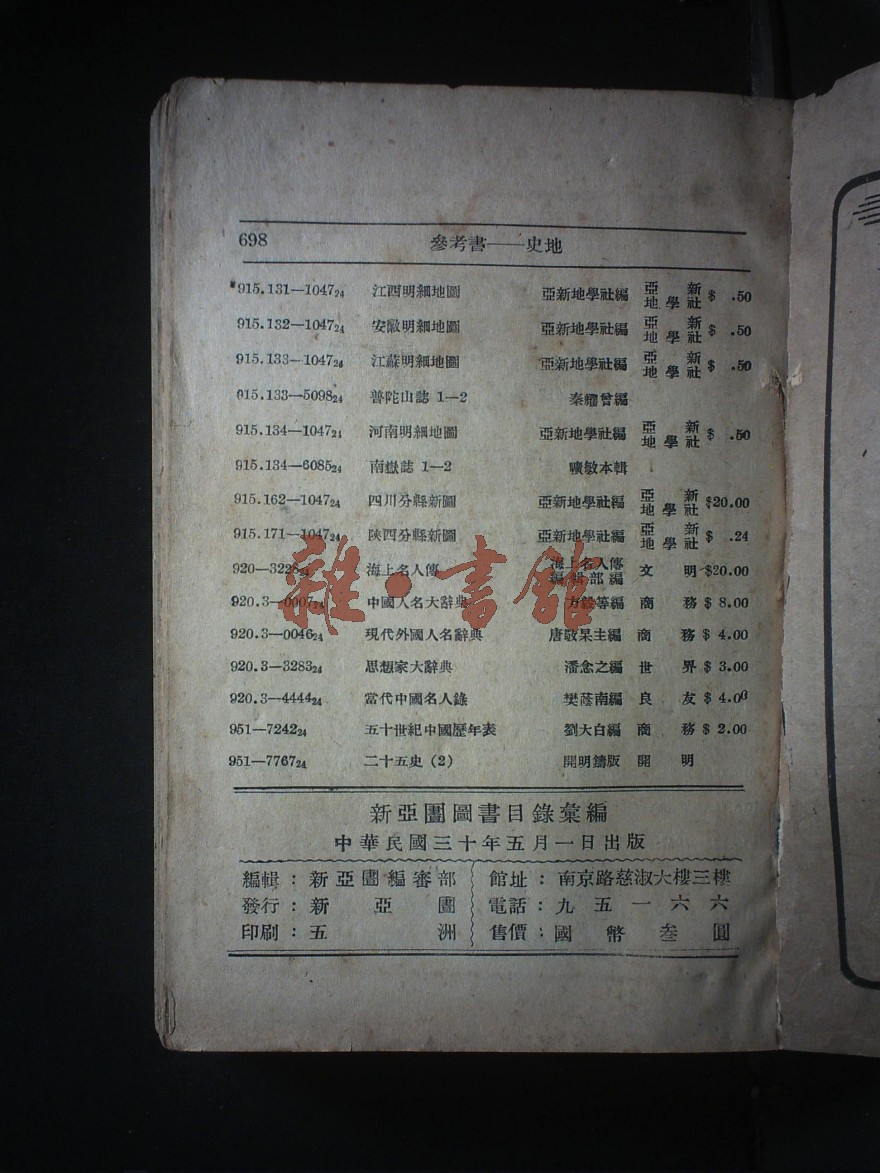 698 參考書——史地
915.131—1047₂₄ 江西明細地圖 亞新地學社編 亞新地學社 $ .50
915.132—1047₂₄ 安徽明細地圖 亞新地學社編 亞新地學社 $ .50
915.133—1047₂₄ 江蘇明細地圖 亞新地學社編 亞新地學社 $ .50
915.133—5098₂₄ 普陀山誌 1—2 秦耀曾編
915.134—1047₂₄ 河南明細地圖 亞新地學社編 亞新地學社 $ .50
915.134—6085₂₄ 南嶽誌 1—2 曠敏本輯
915.162—1047₂₄ 四川分縣新圖 亞新地學社編 亞新地學社 $20.00
915.171—1047₂₄ 陝西分縣新圖 亞新地學社編 亞新地學社 $ .24
920—3228₂₄ 海上名人傳 海上名人傳編輯部編 文明 $20.00
920.3—0007₂₄ 中國人名大辭典 方毅等編 商務 $ 8.00
920.3—0046₂₄ 現代外國人名辭典 唐敬杲主編 商務 $ 4.00
920.3—3283₂₄ 思想家大辭典 潘念之編 世界 $ 3.00
920.3—4444₂₄ 當代中國名人錄 樊蔭南編 良友 $ 4.00
951—7242₂₄ 五十世紀中國歷年表 劉大白編 商務 $ 2.00
951—7767₂₄ 二十五史 (2) 開明鑄版 開明
新亞圕圖書目錄彙編
中華民國三十年五月一日出版
編輯：新亞圕編審部
發行：新亞圕
印刷：五洲
館址：南京路慈淑大樓三樓
電話：九五一六六
售價：國幣叁圓
雜·書館